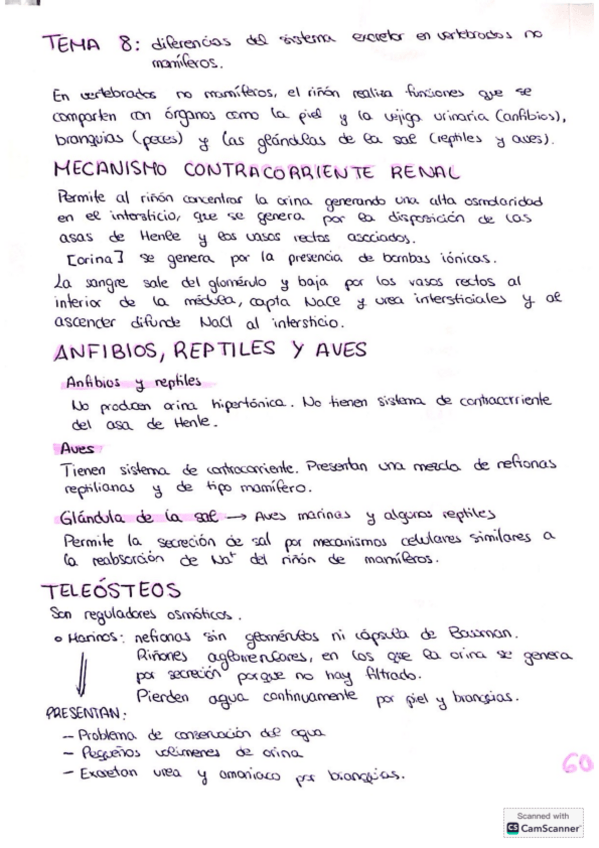 TEMA 8: diferencias del sistema excretor en vertebrados no
mamíferos.
En vertebrados no mamíferos, el riñón realiza funciones que se
comparten con órganos como la piel y la vejiga urinaria (anfibios),
branquias (peces) y las glándulas de la sal (reptiles y aves).
MECANISMO CONTRACORRIENTE RENAL
Permite al riñón concentrar la orina generando una alta osmolaridad
en el intersticio, que se genera por la disposición de las
asas de Henle y los vasos rectos asociados.
[orina] se genera por la presencia de bombas iónicas.
La sangre sale del glomérulo y baja por los vasos rectos al
interior de la médula, capta NaCl y urea intersticiales y al
ascender difunde NaCl al intersticio.
ANFIBIOS, REPTILES Y AVES
Anfibios y reptiles
No producen orina hipertónica. No tienen sistema de contracorriente
del asa de Henle.
Aves
Tienen sistema de contracorriente. Presentan una mezcla de nefronas
reptilianas y de tipo mamífero.
Glándula de la sal → Aves marinas y algunos reptiles
Permite la secreción de sal por mecanismos celulares similares a
la reabsorción de Na⁺ del riñón de mamíferos.
TELEÓSTEOS
Son reguladores osmóticos.
o Marinos: nefronas sin glomérulos ni cápsula de Bowman.
Riñones aglomerulares, en los que la orina se genera
por secreción porque no hay filtrado.
Pierden agua continuamente por piel y branquias.
PRESENTAN:
- Problema de conservación del agua
- Pequeños volúmenes de orina
- Excretan urea y amoniaco por branquias.
60
Scanned with
CS CamScanner